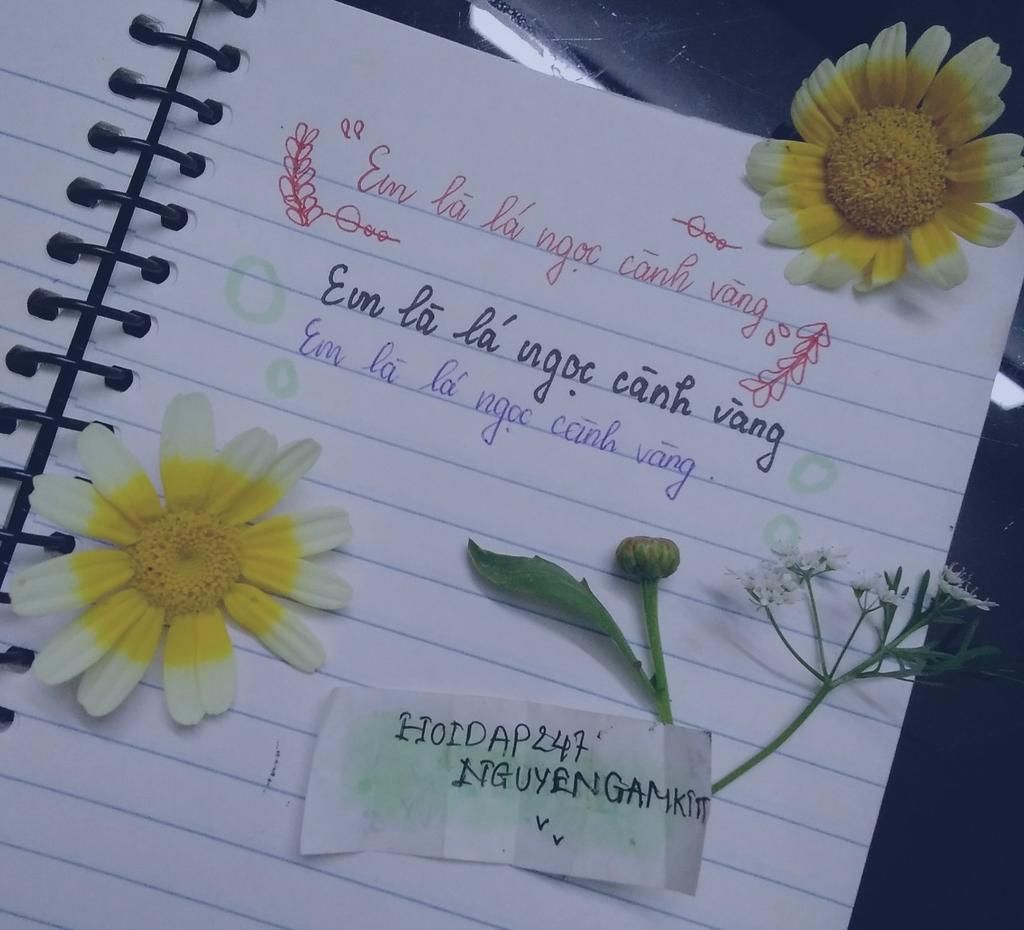 "Em là lá ngọc cành vàng
Em là lá ngọc cành vàng
Em là lá ngọc cành vàng.
HOIDAP247
NGUYENGAMKIT